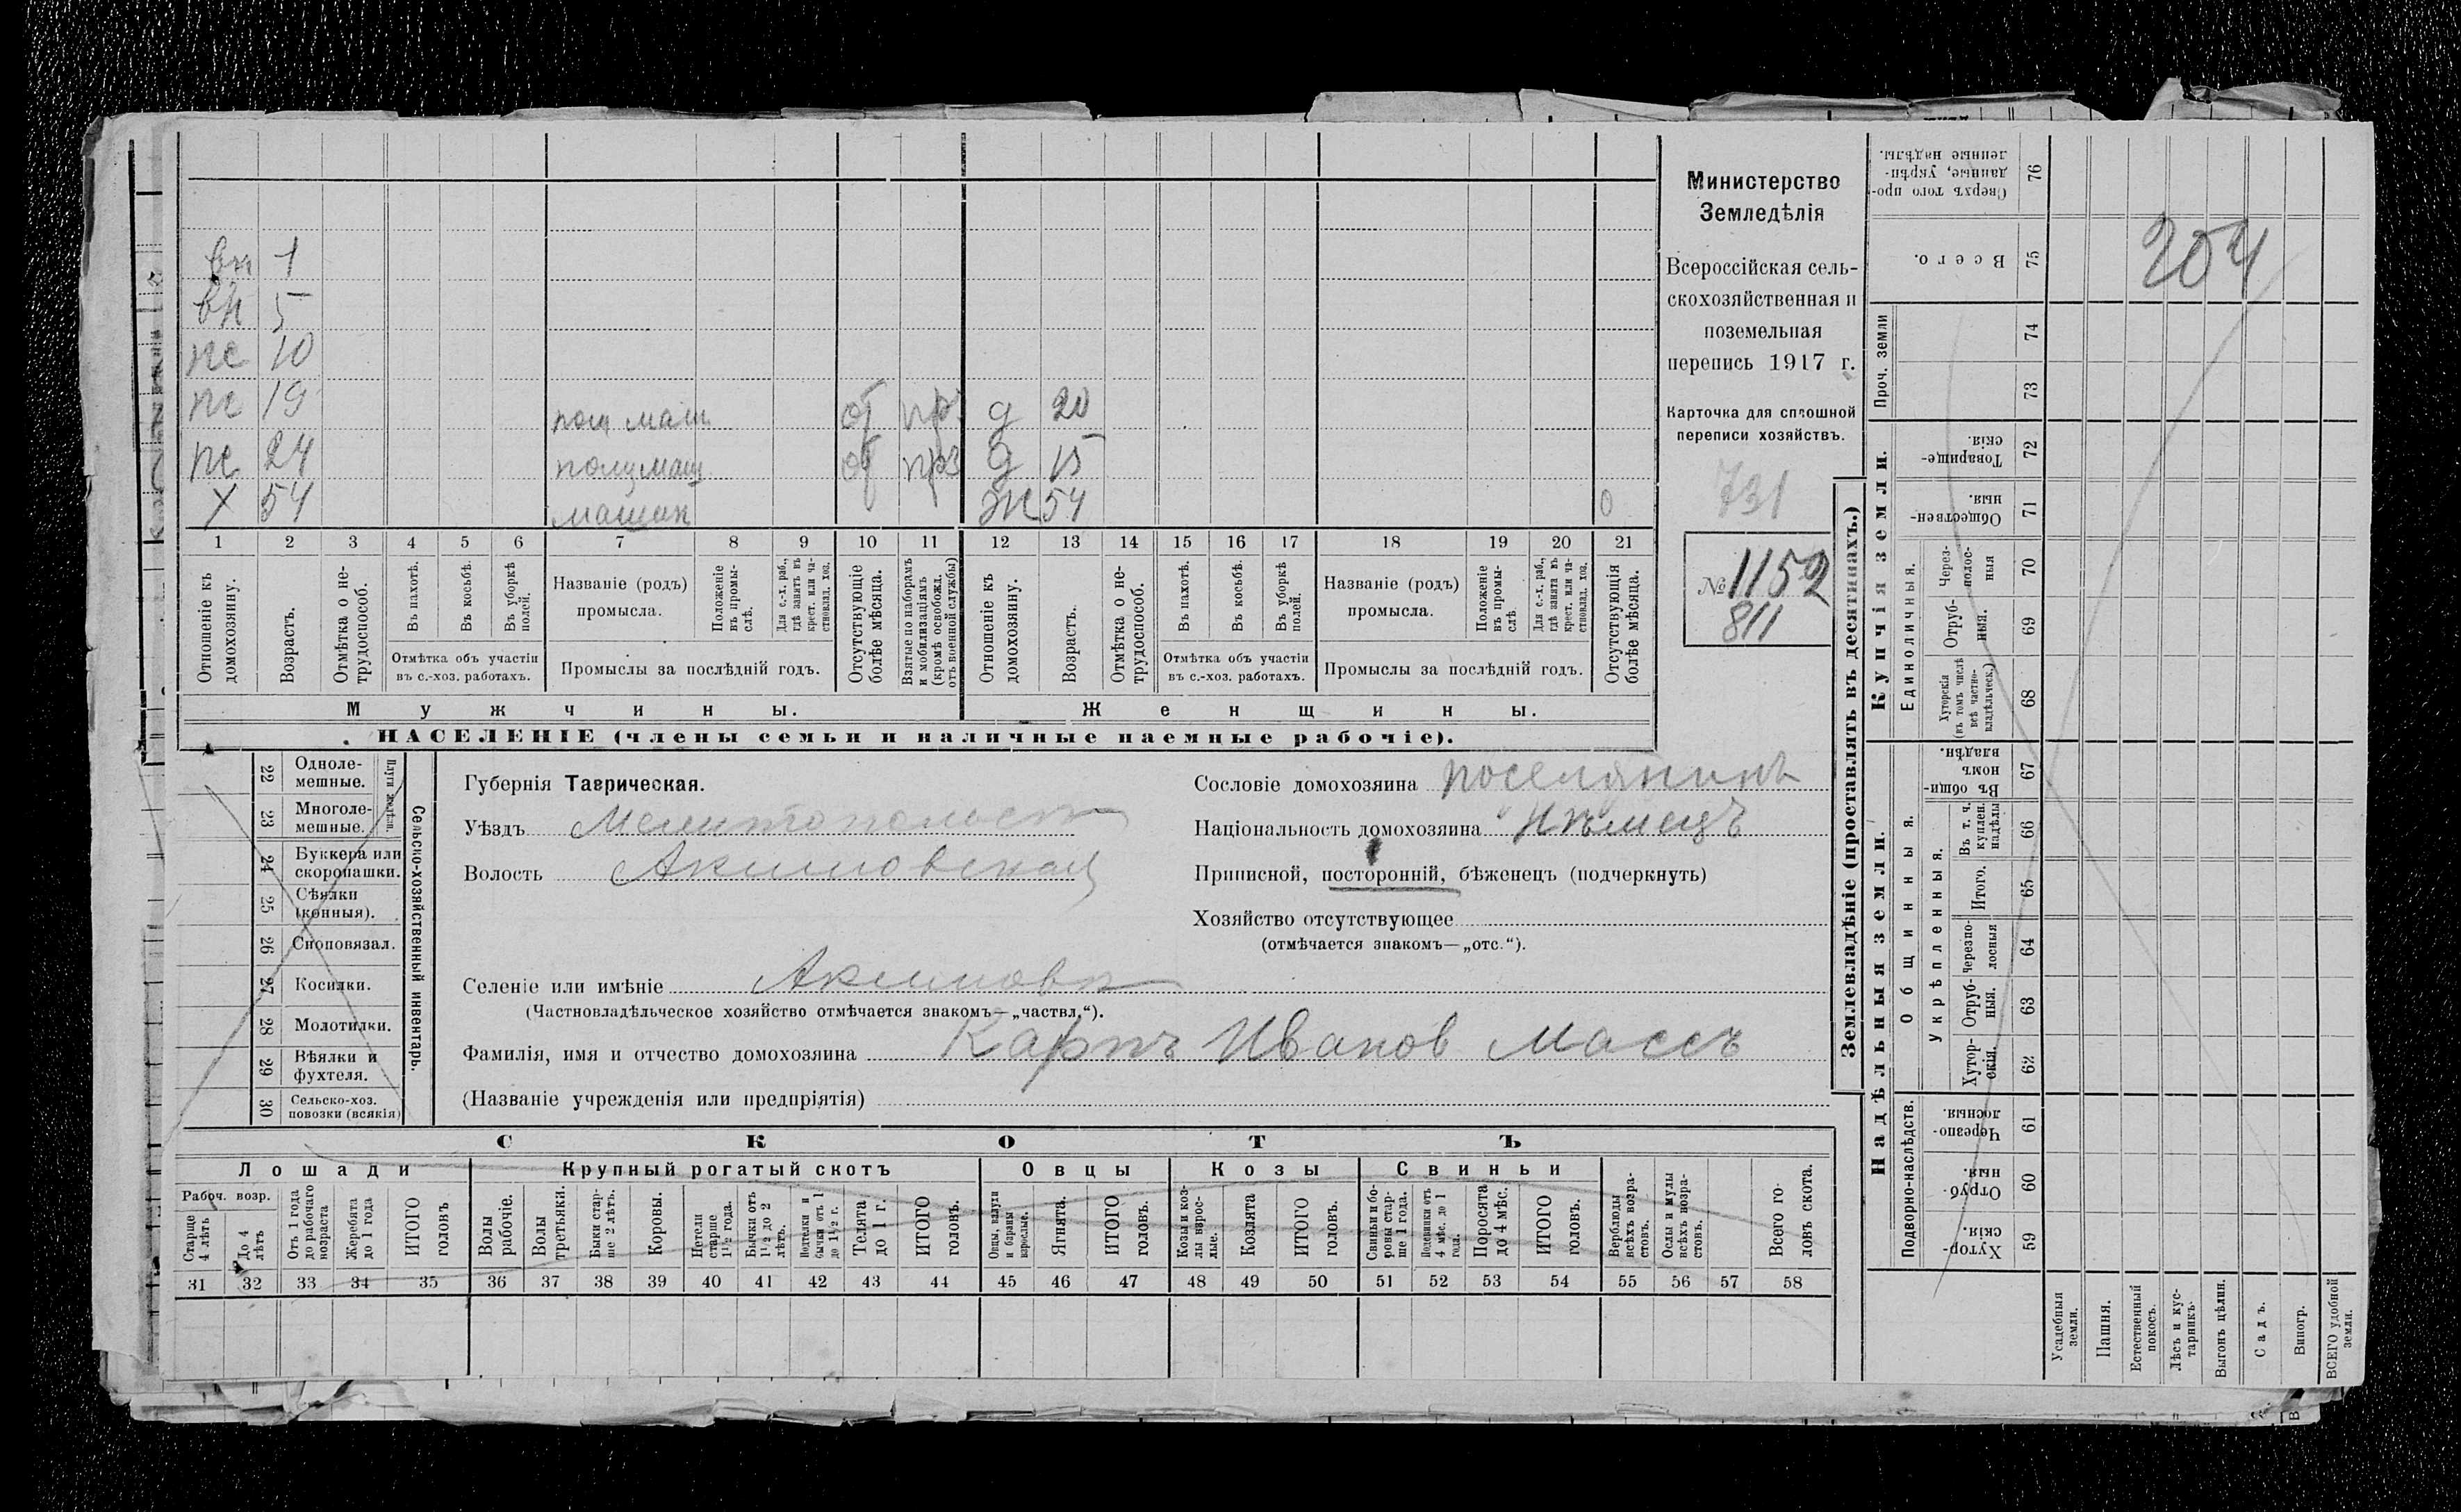 вн 1
вн 5
пс 10
пс 19 пом маш от прз д 20
пс 24 помщмаш от прз д 15
х 54 машин Ж 54 0
1 2 3 4 5 6 7 8 9 10 11 12 13 14 15 16 17 18 19 20 21
Отношеніе къ домохозяину.
Возрастъ.
Отмѣтка о не-
трудоспособ.
Въ пахотѣ.
Въ косьбѣ.
Въ уборкѣ
полей.
Отмѣтка объ участіи
въ с.-хоз. работахъ.
Названіе (родъ)
промысла.
Положеніе
въ промы-
слѣ.
Для с.-х. раб.,
гдѣ занятъ въ
крест. или ча-
стновлад. хоз.
Промыслы за послѣдній годъ.
Отсутствующіе
болѣе мѣсяца.
Взятые по наборамъ
и мобилизаціямъ
(кромѣ освобожд.
отъ военной службы)
Отношеніе къ
домохозяину.
Возрастъ.
Отмѣтка о не-
трудоспособ.
Въ пахотѣ.
Въ косьбѣ.
Въ уборкѣ
полей.
Отмѣтка объ участіи
въ с.-хоз. работахъ.
Названіе (родъ)
промысла.
Положеніе
въ промы-
слѣ
Для с.-х. раб.,
гдѣ занята въ
крест. или ча-
стновлад. хоз.
Промыслы за послѣдній годъ.
Отсутствующія
болѣе мѣсяца.
Мужчины.
Женщины.
НАСЕЛЕНІЕ (члены семьи и наличные наемные рабочіе).
Министерство
Земледѣлія
Всероссійская сель-
скохозяйственная и
поземельная
перепись 1917 г.
Карточка для сплошной
переписи хозяйствъ.
731
№ 1152
811
22 Одноле-
мешные.
23 Многоле-
мешные.
Плуги желѣзн.
24 Буккера или
скоропашки.
25 Сѣялки
(конныя).
26 Сноповязал.
27 Косилки.
28 Молотилки.
29 Вѣялки и
фухтеля.
30 Сельско-хоз.
повозки (всякія)
Сельско-хозяйственный инвентарь.
Губернія Таврическая.
Уѣздъ Мелитопольск
Волость Акимовская
Сословіе домохозяина поселянинъ
Національность домохозяина Нѣмецъ
Приписной, посторонній, бѣженецъ (подчеркнуть)
Хозяйство отсутствующее
(отмѣчается знакомъ—„отс.“).
Селеніе или имѣніе Акимовк
(Частновладѣльческое хозяйство отмѣчается знакомъ—„частвл.“).
Фамилія, имя и отчество домохозяина Карпъ Иванов Массъ
(Названіе учрежденія или предпріятія)
СКОТЪ
Лошади
Крупный рогатый скотъ
Овцы
Козы
Свиньи
Рабоч. возр.
Старше
4 лѣтъ
До 4
лѣтъ
Отъ 1 года
до рабочаго
возраста
Жеребята
до 1 года
ИТОГО
головъ
Волы
рабочіе.
Волы
третьяки.
Быки стар-
ше 2 лѣтъ.
Коровы.
Нетели
старше
1½ года.
Бычки отъ
1½ до 2
лѣтъ.
Подтелки и
бычки отъ 1
до 1½ г.
Телята
до 1 г.
ИТОГО
головъ.
Овцы, валухи
и бараны
взрослые.
Ягнята.
ИТОГО
головъ.
Козы и коз-
лы взрос-
лые.
Козлята
ИТОГО
головъ.
Свиньи и бо-
ровы стар-
ше 1 года.
Подсвинки отъ
4 мѣс. до 1
года.
Поросята
до 4 мѣс.
ИТОГО
головъ.
Верблюды
всѣхъ возра-
стовъ.
Ослы и мулы
всѣхъ возра-
стовъ.
Всего го-
ловъ скота.
31 32 33 34 35 36 37 38 39 40 41 42 43 44 45 46 47 48 49 50 51 52 53 54 55 56 57 58
Землевладѣніе (проставлять въ десятинахъ.)
Надѣльныя земли.
Купчія земли.
Проч. земли
Подворно-наслѣдств.
Общинныя.
Укрѣпленныя.
Единоличныя.
Сверхъ того про-
данные, укрѣп-
ленные надѣлы.
76
Всего.
75
204
74
73
Товарище-
скія.
72
Обществен-
ныя.
71
Через-
полос-
ныя
70
Отруб-
ныя.
69
Хуторскія
(въ томъ числѣ
всѣ частно-
владѣльческ.)
68
Въ общин-
номъ
владѣн.
67
Въ т. ч.
куплен.
надѣлы
66
Итого.
65
Черезпо-
лосныя
64
Отруб-
ныя.
63
Хутор-
скія.
62
Черезпо-
лосныя.
61
Отруб-
ныя.
60
Хутор-
скія.
59
Усадебныя
земли.
Пашня.
Естественный
покосъ.
Лѣсъ и кус-
тарникъ.
Выгонъ цѣлин.
Садъ.
Виногр.
ВСЕГО удобной
земли.